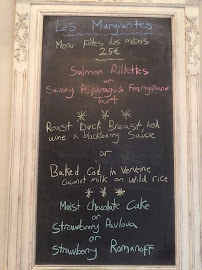 Les Marguerites
Menu fêtes des mères
25€
Salmon Rillettes
or
Savory Asparagus Frangipane
Tart
Roast Duck Breast, red
wine & blackberry Sauce
or
Baked Cod in Verveine
Coconut milk on wild rice
Moist Chocolate Cake
or
Strawberry Pavlova
or
Strawberry Romanoff